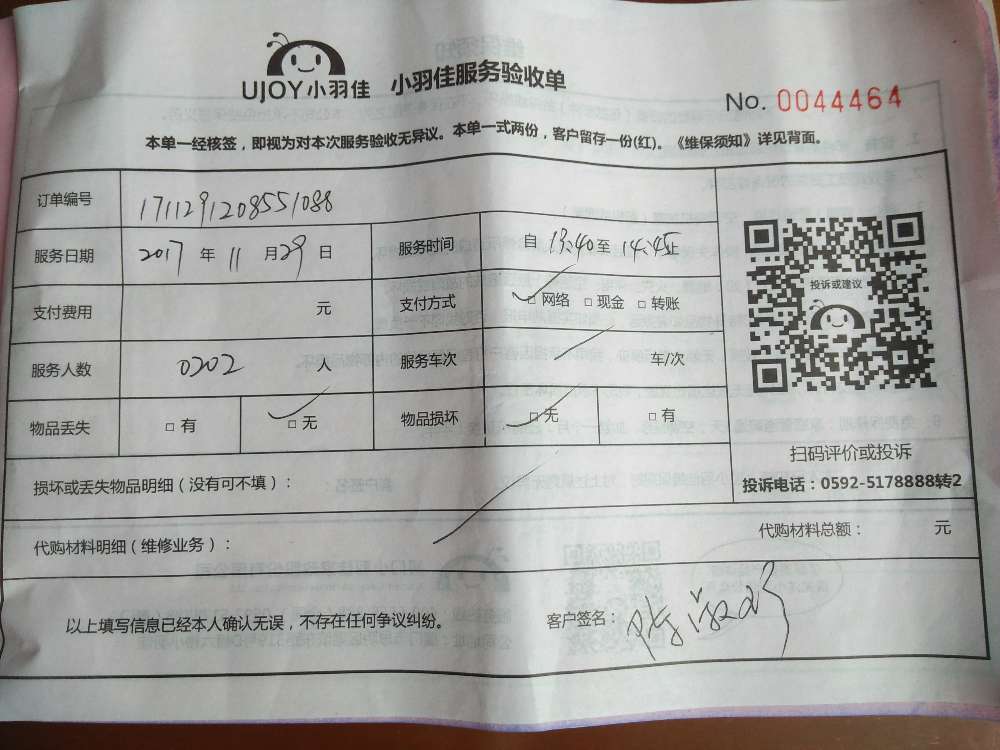 UJOY小羽佳 小羽佳服务验收单
No. 0044464
本单一经核签，即视为对本次服务验收无异议。本单一式两份，客户留存一份(红)。《维保须知》详见背面。
订单编号 1711291208551088
服务日期 2017 年 11 月 29 日 服务时间 自 13:40 至 14:45 止
支付费用 元 支付方式 □网络 □现金 □转账
服务人数 0202 人 服务车次 车/次
物品丢失 □有 □无 物品损坏 □无 □有
投诉或建议
扫码评价或投诉
投诉电话：0592-5178888转2
损坏或丢失物品明细（没有可不填）：
代购材料明细（维修业务）： 代购材料总额： 元
以上填写信息已经本人确认无误，不存在任何争议纠纷。 客户签名：